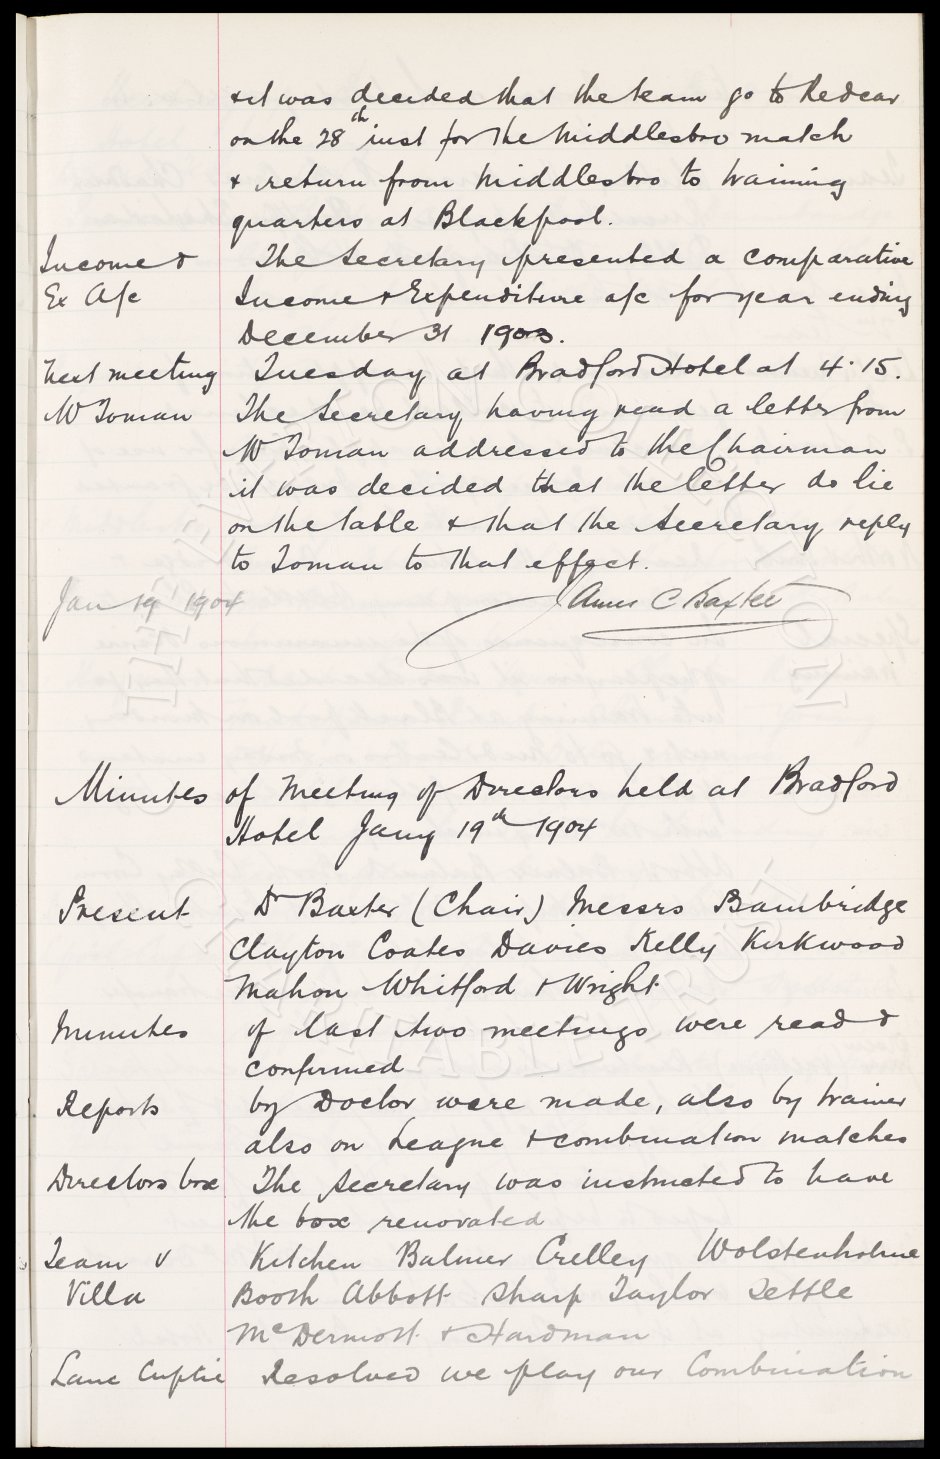 & it was decided that the team go to Redcar
on the 28th inst for the Middlesbro match
& return from Middlesbro to training
quarters at Blackpool.
Income & The Secretary presented a comparative
Ex A/c Income & Expenditure a/c for year ending
December 31 1903.
Next meeting Tuesday at Bradford Hotel at 4.15.
W Toman The Secretary having read a letter from
W Toman addressed to the Chairman
it was decided that the letter do lie
on the table & that the Secretary reply
to Toman to that effect.
Jan 19 1904 James C Baxter
Minutes of Meeting of Directors held at Bradford
Hotel Jany 19th 1904
Present Dr Baxter (Chair) Messrs Bainbridge
Clayton Coates Davies Kelly Kirkwood
Mahon Whitford & Wright
Minutes of last two meetings were read &
confirmed
Reports by Doctor were made, also by trainer
also on League & combination matches
Directors box The Secretary was instructed to have
the box renovated
Team v Kitchen Balmer Crelley Wolstenholme
Villa Booth Abbott Sharp Taylor Settle
McDermott & Hardman
Lanc Cuptie Resolved we play our Combination
THE EVERTON COLLECTION
CHARITABLE TRUST